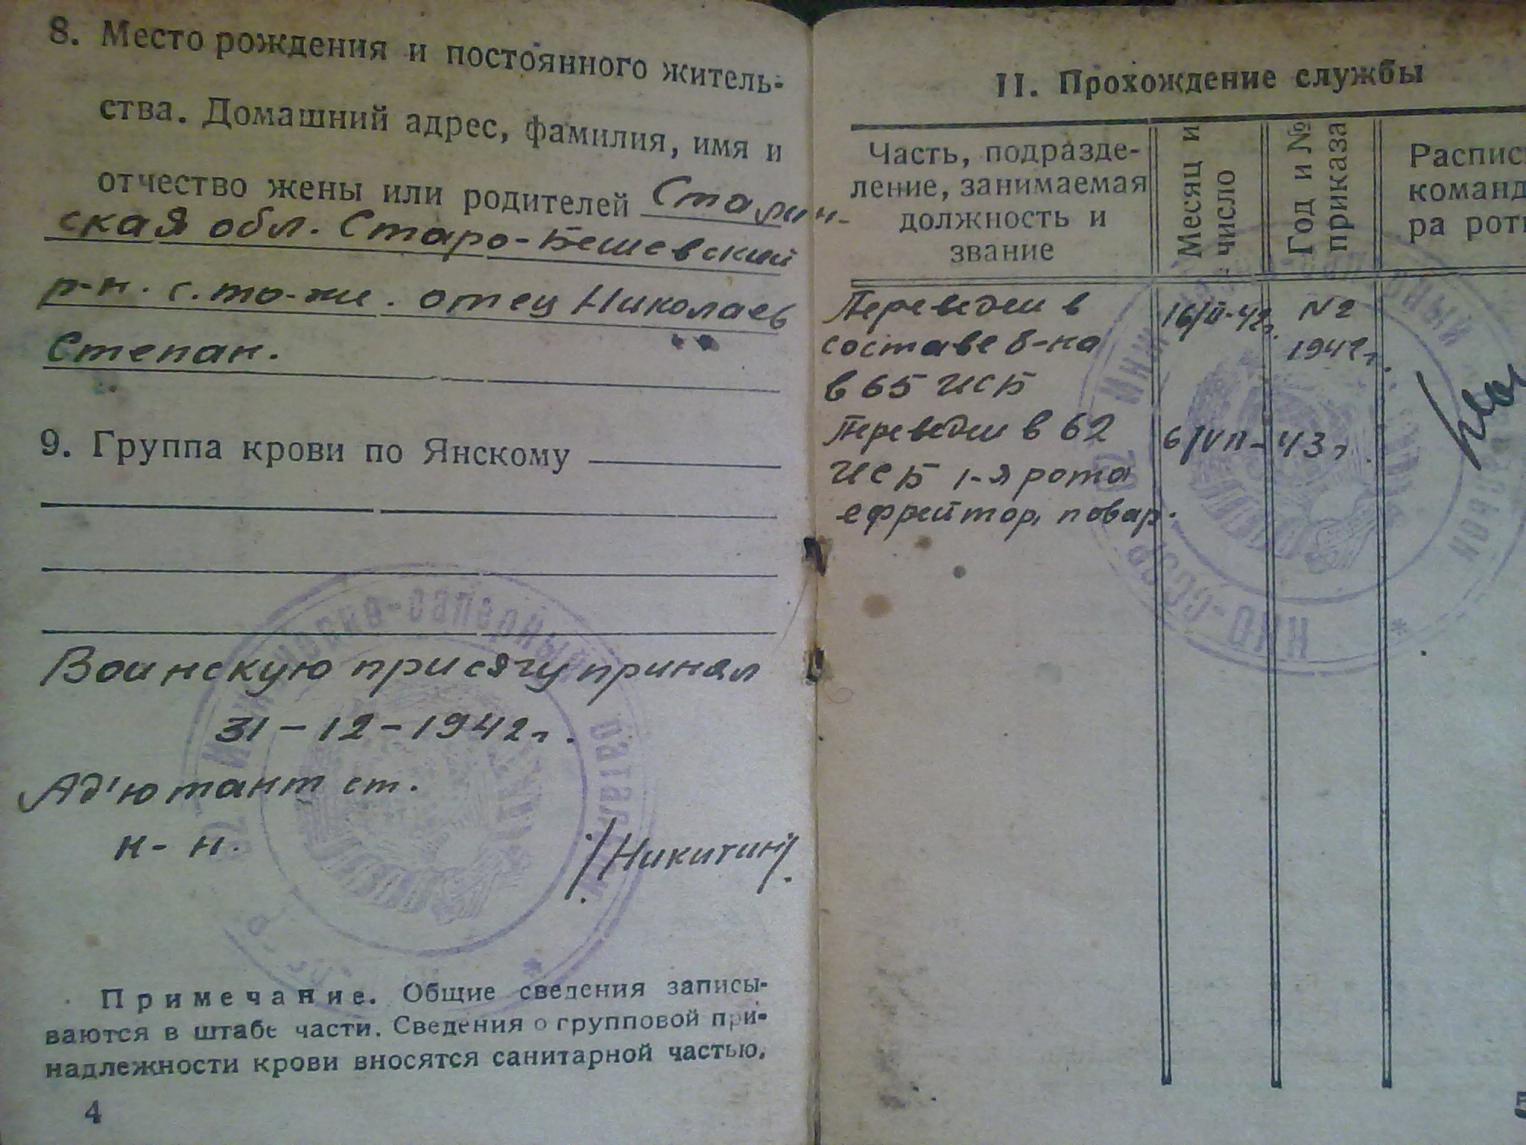 8. Место рождения и постоянного житель-
ства. Домашний адрес, фамилия, имя и
отчество жены или родителей Сталин-
ская обл. Старо-Бешевский
р-н. с. то-же. отец Николаев
Степан.
9. Группа крови по Янскому
Воинскую присягу принял
31-12-1942г.
Ад'ютант ст.
н-н. /Никитин/.
Примечание. Общие сведения записы-
ваются в штабе части. Сведения о групповой при-
надлежности крови вносятся санитарной частью.
4
II. Прохождение службы
Часть, подразде-
ление, занимаемая
должность и
звание
Месяц и
число
Год и №
приказа
Распис
команд
ра рот
Переведен в
составе б-на
в 65 ИСБ
16/II-42г.
N2
1942г.
Переведен в 62
ИСБ 1-я рота
ефрейтор, повар.
6/VII-43г.
Инженерно-саперный
батальон
НКО-СССР
5